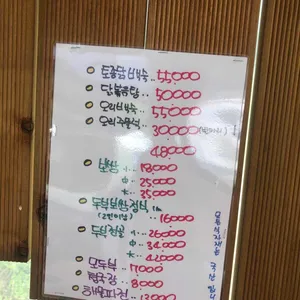 토종닭백숙.. 55000
닭볶음탕.. 50000
오리백숙.. 55000
오리주물럭 30000
48000
보쌈 小 18000
中 25000
大 35000
두부보쌈정식 1인
(2인이상) 16000
두부전골 小 26000
中 34000
大 42000
모두부.. 7000
청국장.. 8000
해물파전.. 13000
모든식자재는 국산입니